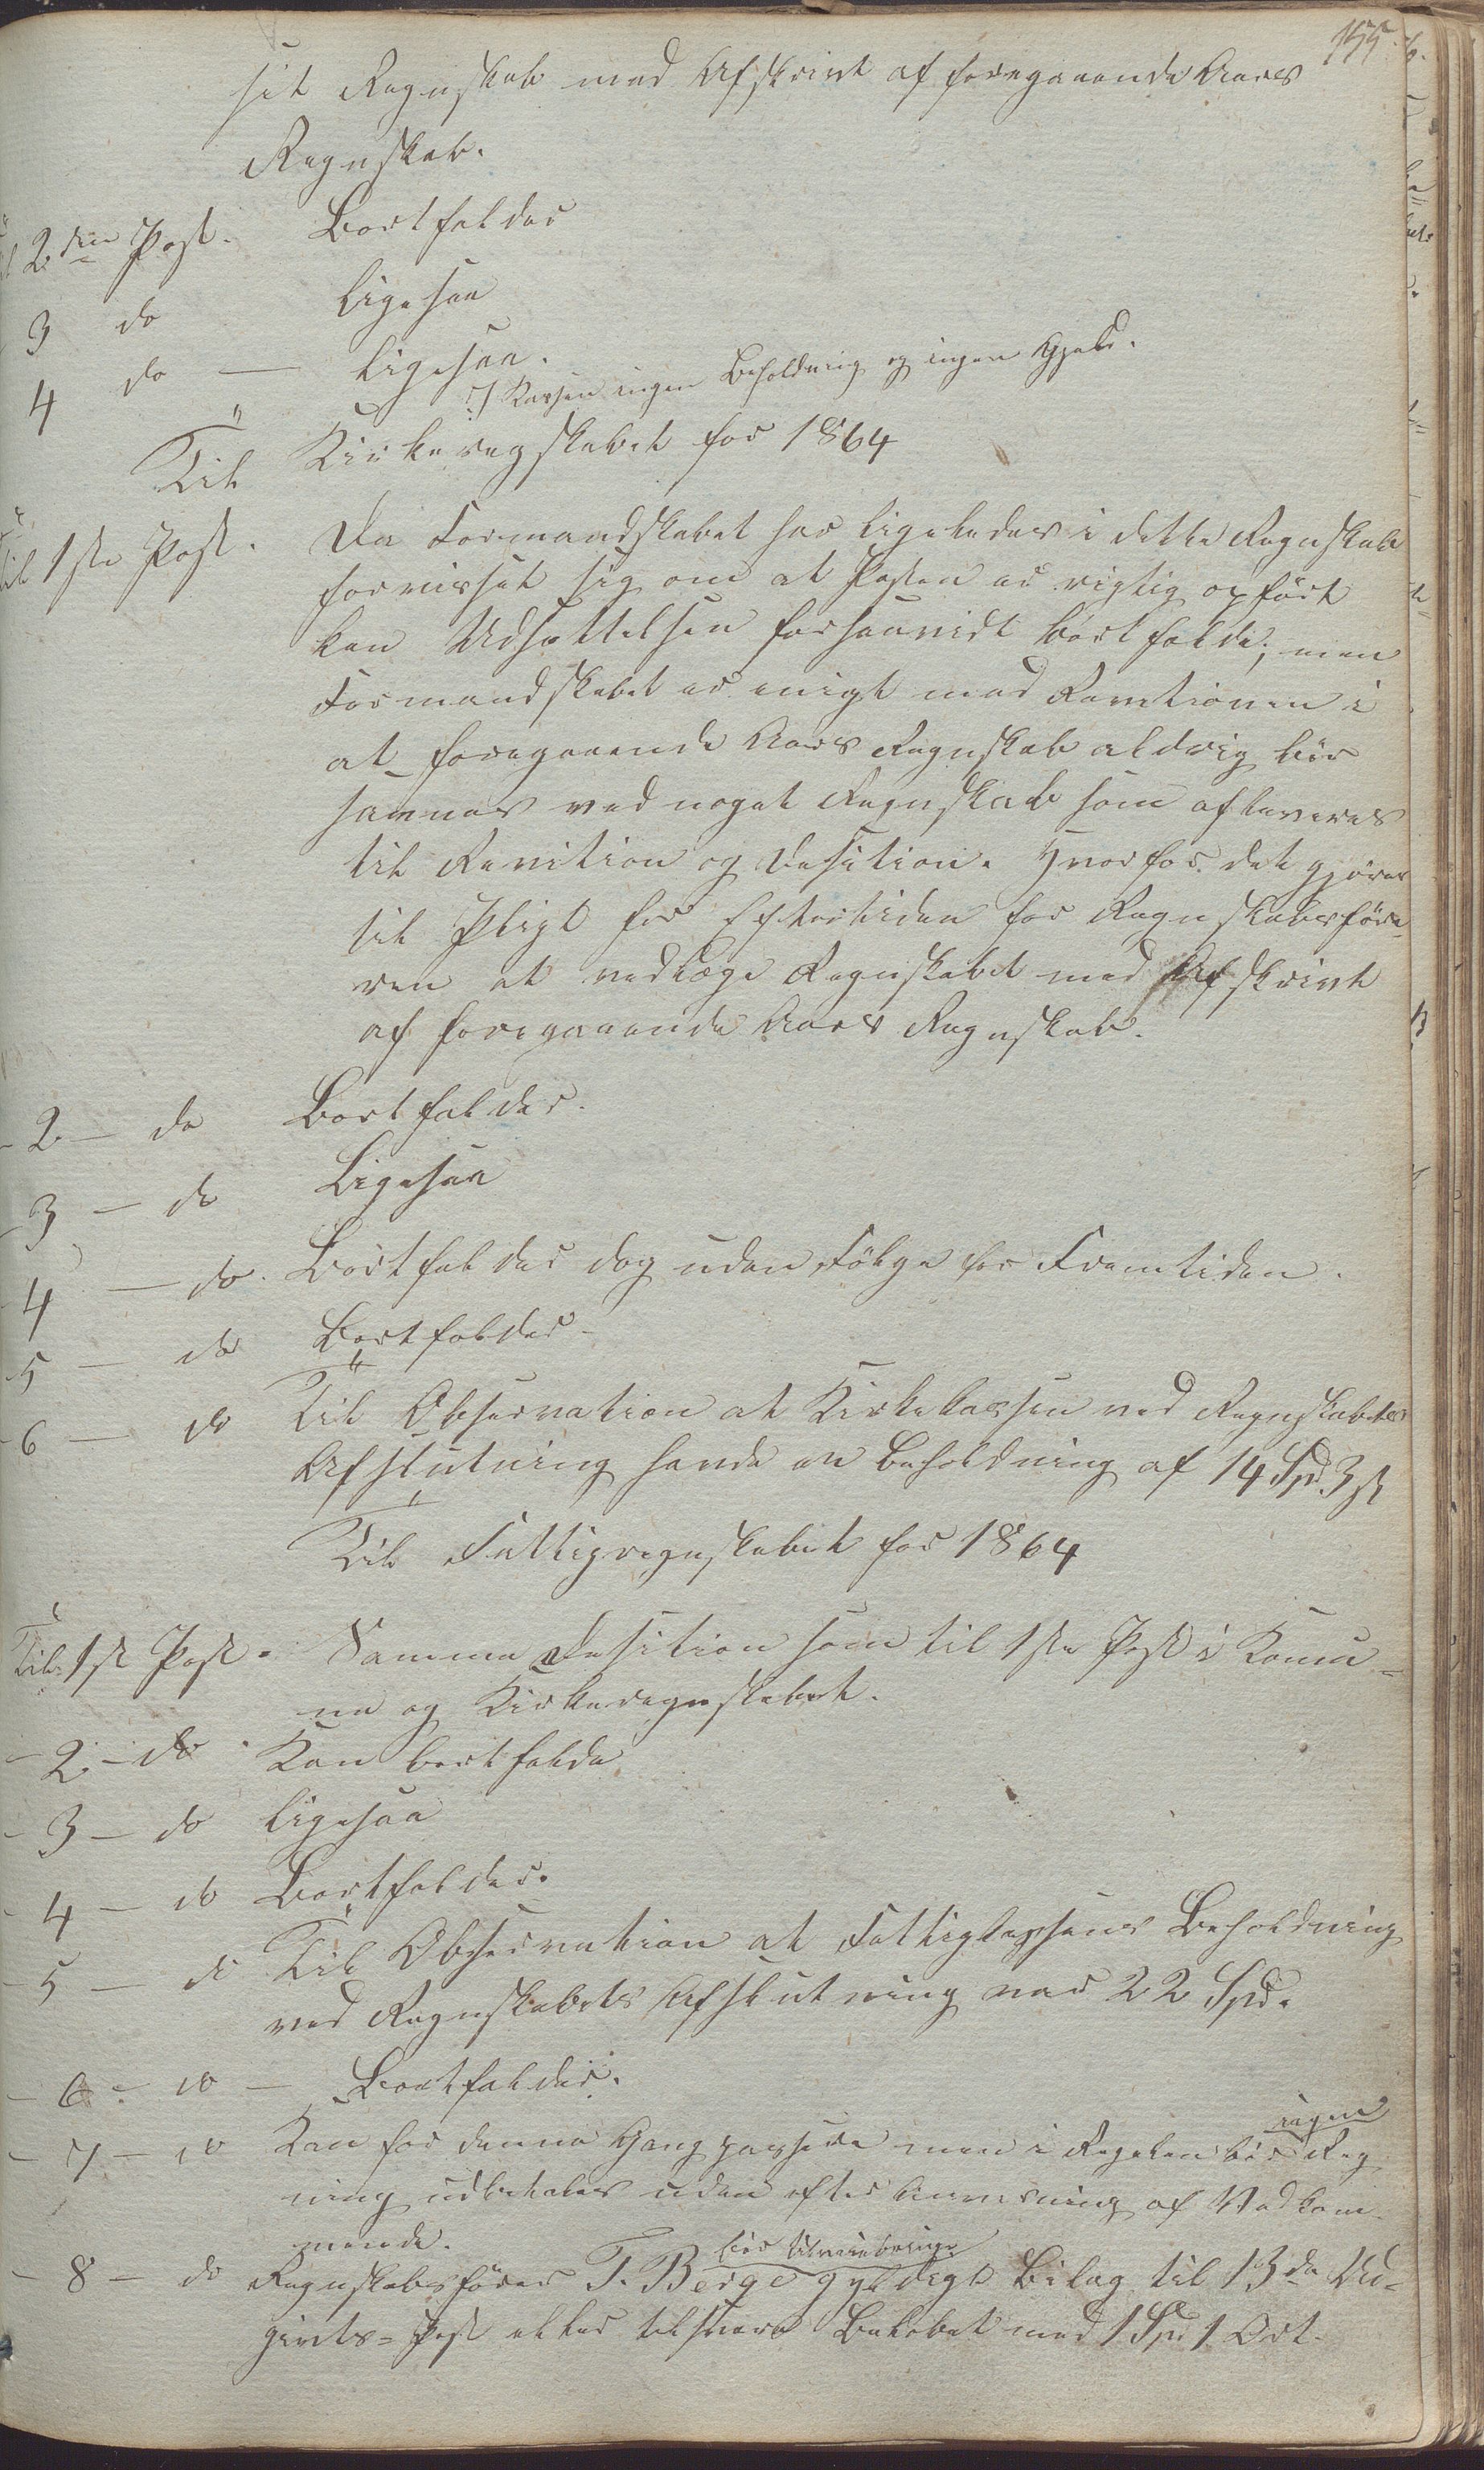 155.
sit Regnskab med Afskrivt af foregaaende Aars
Regnskab.
2den Post. Bortfalder
3 do Ligesaa
4 do — Ligesaa.
?/ Kassen ingen Beholdning og ingen Gjeld.
Til Kirkeregskabet for 1864
Til 1ste Post. Da Formandskabet har ligeledes i dette Regnskab
forvisset sig om at Posten er rigtig opført
kan Udsættelsen forsaavidt bortfalde; men
Formandskabet er enigt med Revitionen i
at foregaaende Aars Regnskab aldrig bør
savnes ved noget Regnskab som afleveres
til Revition og Desition. Hvorfor det gjøres
til Pligt for Eftertiden for Regnskabsføre-
ren at vedlæge Regnskabet med Afskrivt
af foregaaende Aars Regnskab.
- 2 — do Bortfalder.
- 3 — do Ligesaa
4 — do. Bortfalder dog uden Følge for Fremtiden.
5 — do Bortfalder-
- 6 — do Til Observation at Kirkekassen ved Regnskabets
Afslutning havde en Beholdning af 14 Spd. 3 ß
Til Fattigregnskabet for 1864
Til 1st Post. Samme Desition som til 1ste Post i Komu-
ne og Kirkeregnskabet.
- 2 - do. Kan bortfalde
- 3 — do Ligesaa
- 4 — do Bortfalder.
- 5 — do Til Observation at Fattigkassens Beholdning
ved Regnskabets Afslutning var 22 Spd.
- 6 - do — Bortfalder.
ingen
- 7 — do Kan for denne Gang passere men i Regelen bør Reg
ning udbetales uden efter Anvisning af Vedkom-
mende.
bør tilveiebringe
- 8 — do Regnskabsfører T. Berge gyldigt Bilag til 13de Ud-
givts-Post eller tilsvare Beløbet med 1 Spd 1 Ort.